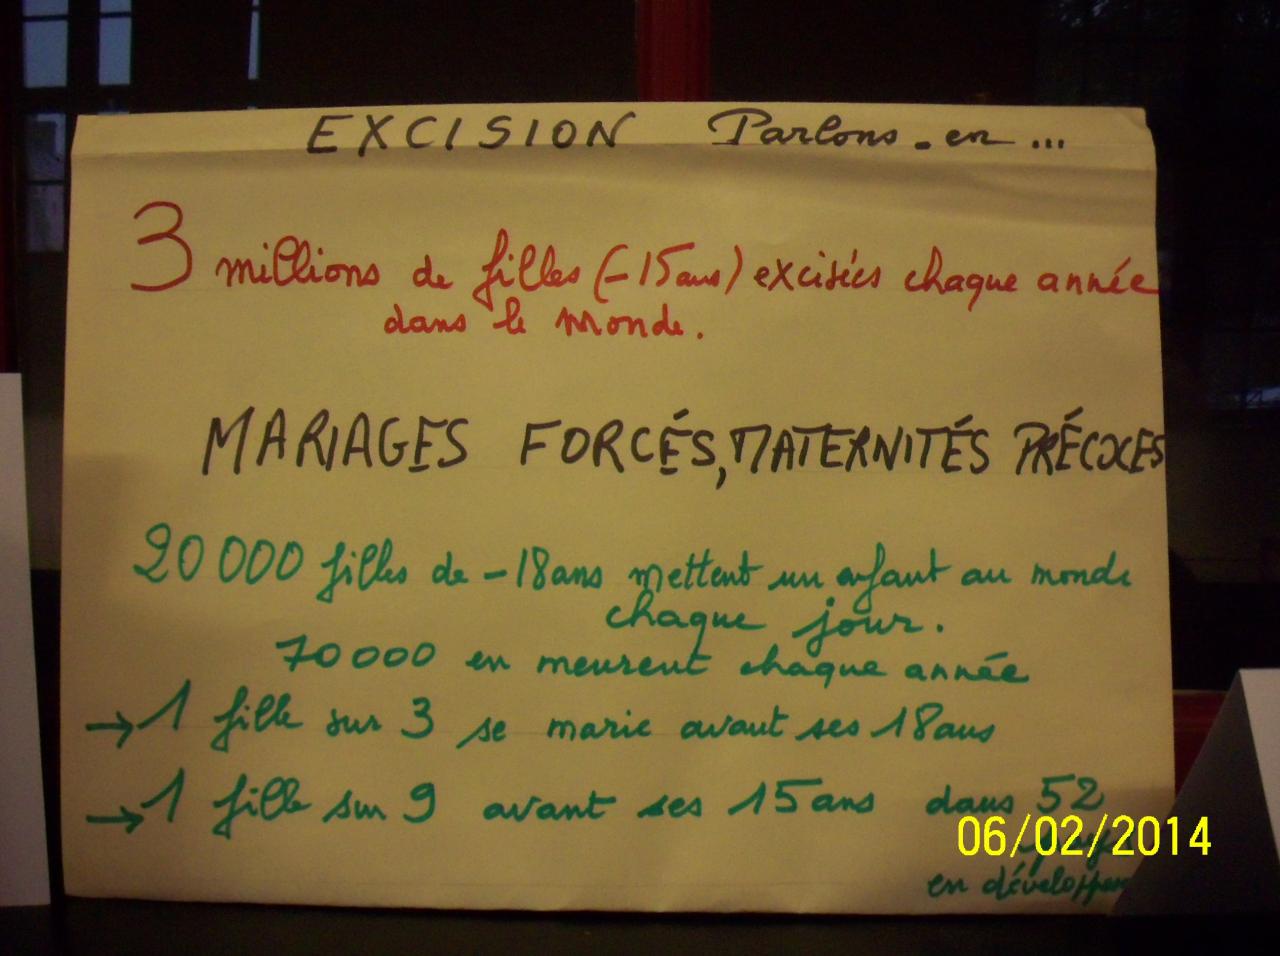 EXCISION Parlons-en...
3 millions de filles (-15ans) excisées chaque année
dans le monde.
MARIAGES FORCÉS, MATERNITÉS PRÉCOCES
20 000 filles de -18ans mettent un enfant au monde
chaque jour.
70 000 en meurent chaque année
→ 1 fille sur 3 se marie avant ses 18ans
→ 1 fille sur 9 avant ses 15ans dans 52
06/02/2014
en développem